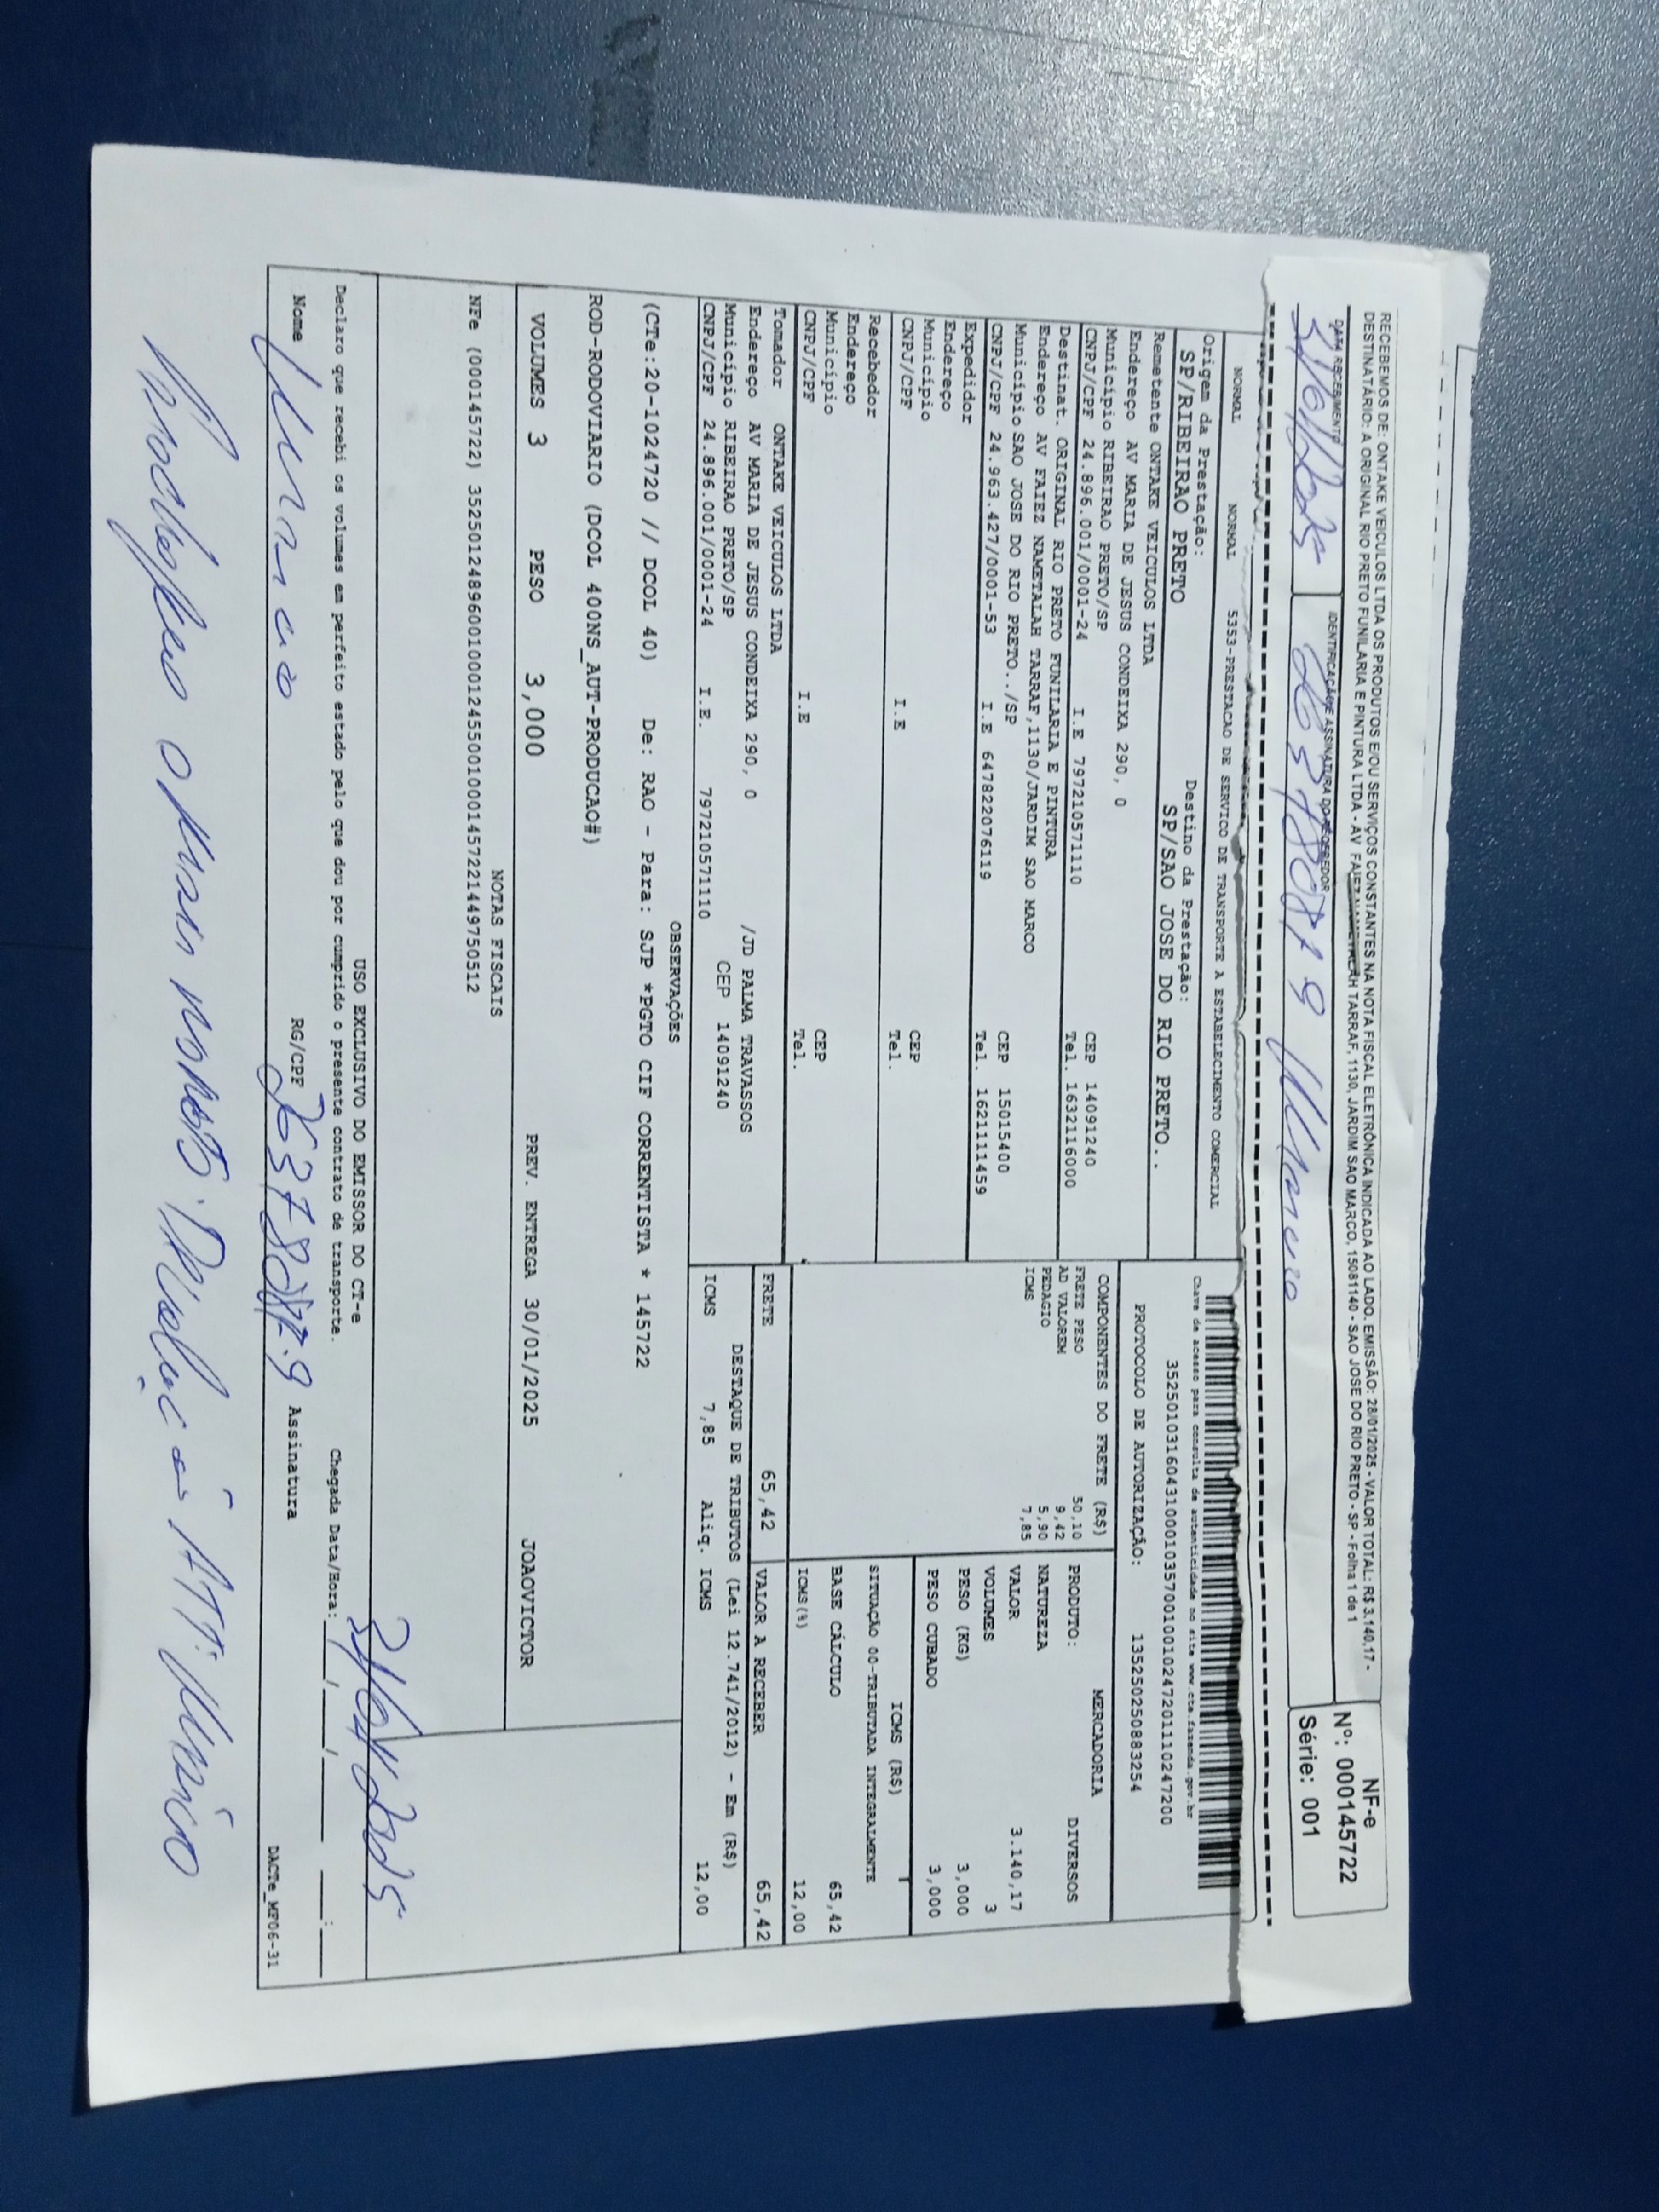 RECEBEMOS DE: ONTAKE VEICULOS LTDA OS PRODUTOS E/OU SERVIÇOS CONSTANTES NA NOTA FISCAL ELETRÔNICA INDICADA AO LADO. EMISSÃO: 28/01/2025 - VALOR TOTAL: R$ 3.140,17 -
DESTINATÁRIO: A ORIGINAL RIO PRETO FUNILARIA E PINTURA LTDA - AV FAIEZ NAMETALAH TARRAF, 1130, JARDIM SAO MARCO, 15081140 - SAO JOSE DO RIO PRETO - SP - Folha 1 de 1
NF-e
Nº: 000145722
Série: 001
DATA RECEBIMENTO
IDENTIFICAÇÃO E ASSINATURA DO RECEBEDOR
NORMAL NORMAL 5353-PRESTACAO DE SERVICO DE TRANSPORTE A ESTABELECIMENTO COMERCIAL
Origem da Prestação: Destino da Prestação:
SP/RIBEIRAO PRETO SP/SAO JOSE DO RIO PRETO..
Chave de acesso para consulta de autenticidade no site www.cte.fazenda.gov.br
35250103160431000103570010010247201110247200
PROTOCOLO DE AUTORIZAÇÃO: 135250250883254
Remetente ONTAKE VEICULOS LTDA
Endereço AV MARIA DE JESUS CONDEIXA 290, 0
Município RIBEIRAO PRETO/SP CEP 14091240
CNPJ/CPF 24.896.001/0001-24 I.E 797210571110 Tel. 1632116000
Destinat. ORIGINAL RIO PRETO FUNILARIA E PINTURA
Endereço AV FAIEZ NAMETALAH TARRAF,1130/JARDIM SAO MARCO
Município SAO JOSE DO RIO PRETO../SP CEP 15015400
CNPJ/CPF 24.963.427/0001-53 I.E 647822076119 Tel. 1621111459
Expedidor
Endereço
Município CEP
CNPJ/CPF I.E Tel.
Recebedor
Endereço
Município CEP
CNPJ/CPF I.E Tel.
COMPONENTES DO FRETE (R$)
FRETE PESO 50,10
AD VALOREM 9,42
PEDAGIO 5,90
ICMS 7,85
MERCADORIA
PRODUTO: DIVERSOS
NATUREZA
VALOR 3.140,17
VOLUMES 3
PESO (KG) 3,000
PESO CUBADO 3,000
ICMS (R$)
SITUAÇÃO 00-TRIBUTADA INTEGRALMENTE
BASE CÁLCULO 65,42
ICMS(%) 12,00
Tomador ONTAKE VEICULOS LTDA
Endereço AV MARIA DE JESUS CONDEIXA 290, 0 /JD PALMA TRAVASSOS
Município RIBEIRAO PRETO/SP CEP 14091240
CNPJ/CPF 24.896.001/0001-24 I.E. 797210571110
FRETE 65,42 VALOR A RECEBER 65,42
DESTAQUE DE TRIBUTOS (Lei 12.741/2012) - Em (R$)
ICMS 7,85 Aliq. ICMS 12,00
OBSERVAÇÕES
(CTe:20-1024720 // DCOL 40) De: RAO - Para: SJP *PGTO CIF CORRENTISTA * 145722
ROD-RODOVIARIO (DCOL 400NS_AUT-PRODUCAO#)
VOLUMES 3 PESO 3,000 PREV. ENTREGA 30/01/2025 JOAOVICTOR
NOTAS FISCAIS
NFe (000145722) 35250124896001000124550010001457221449750512
USO EXCLUSIVO DO EMISSOR DO CT-e
31/01/2025
Declaro que recebi os volumes em perfeito estado pelo que dou por cumprido o presente contrato de transporte. Chegada Data/Hora: / / :
Nome RG/CPF Assinatura
DACTe_MF06-31